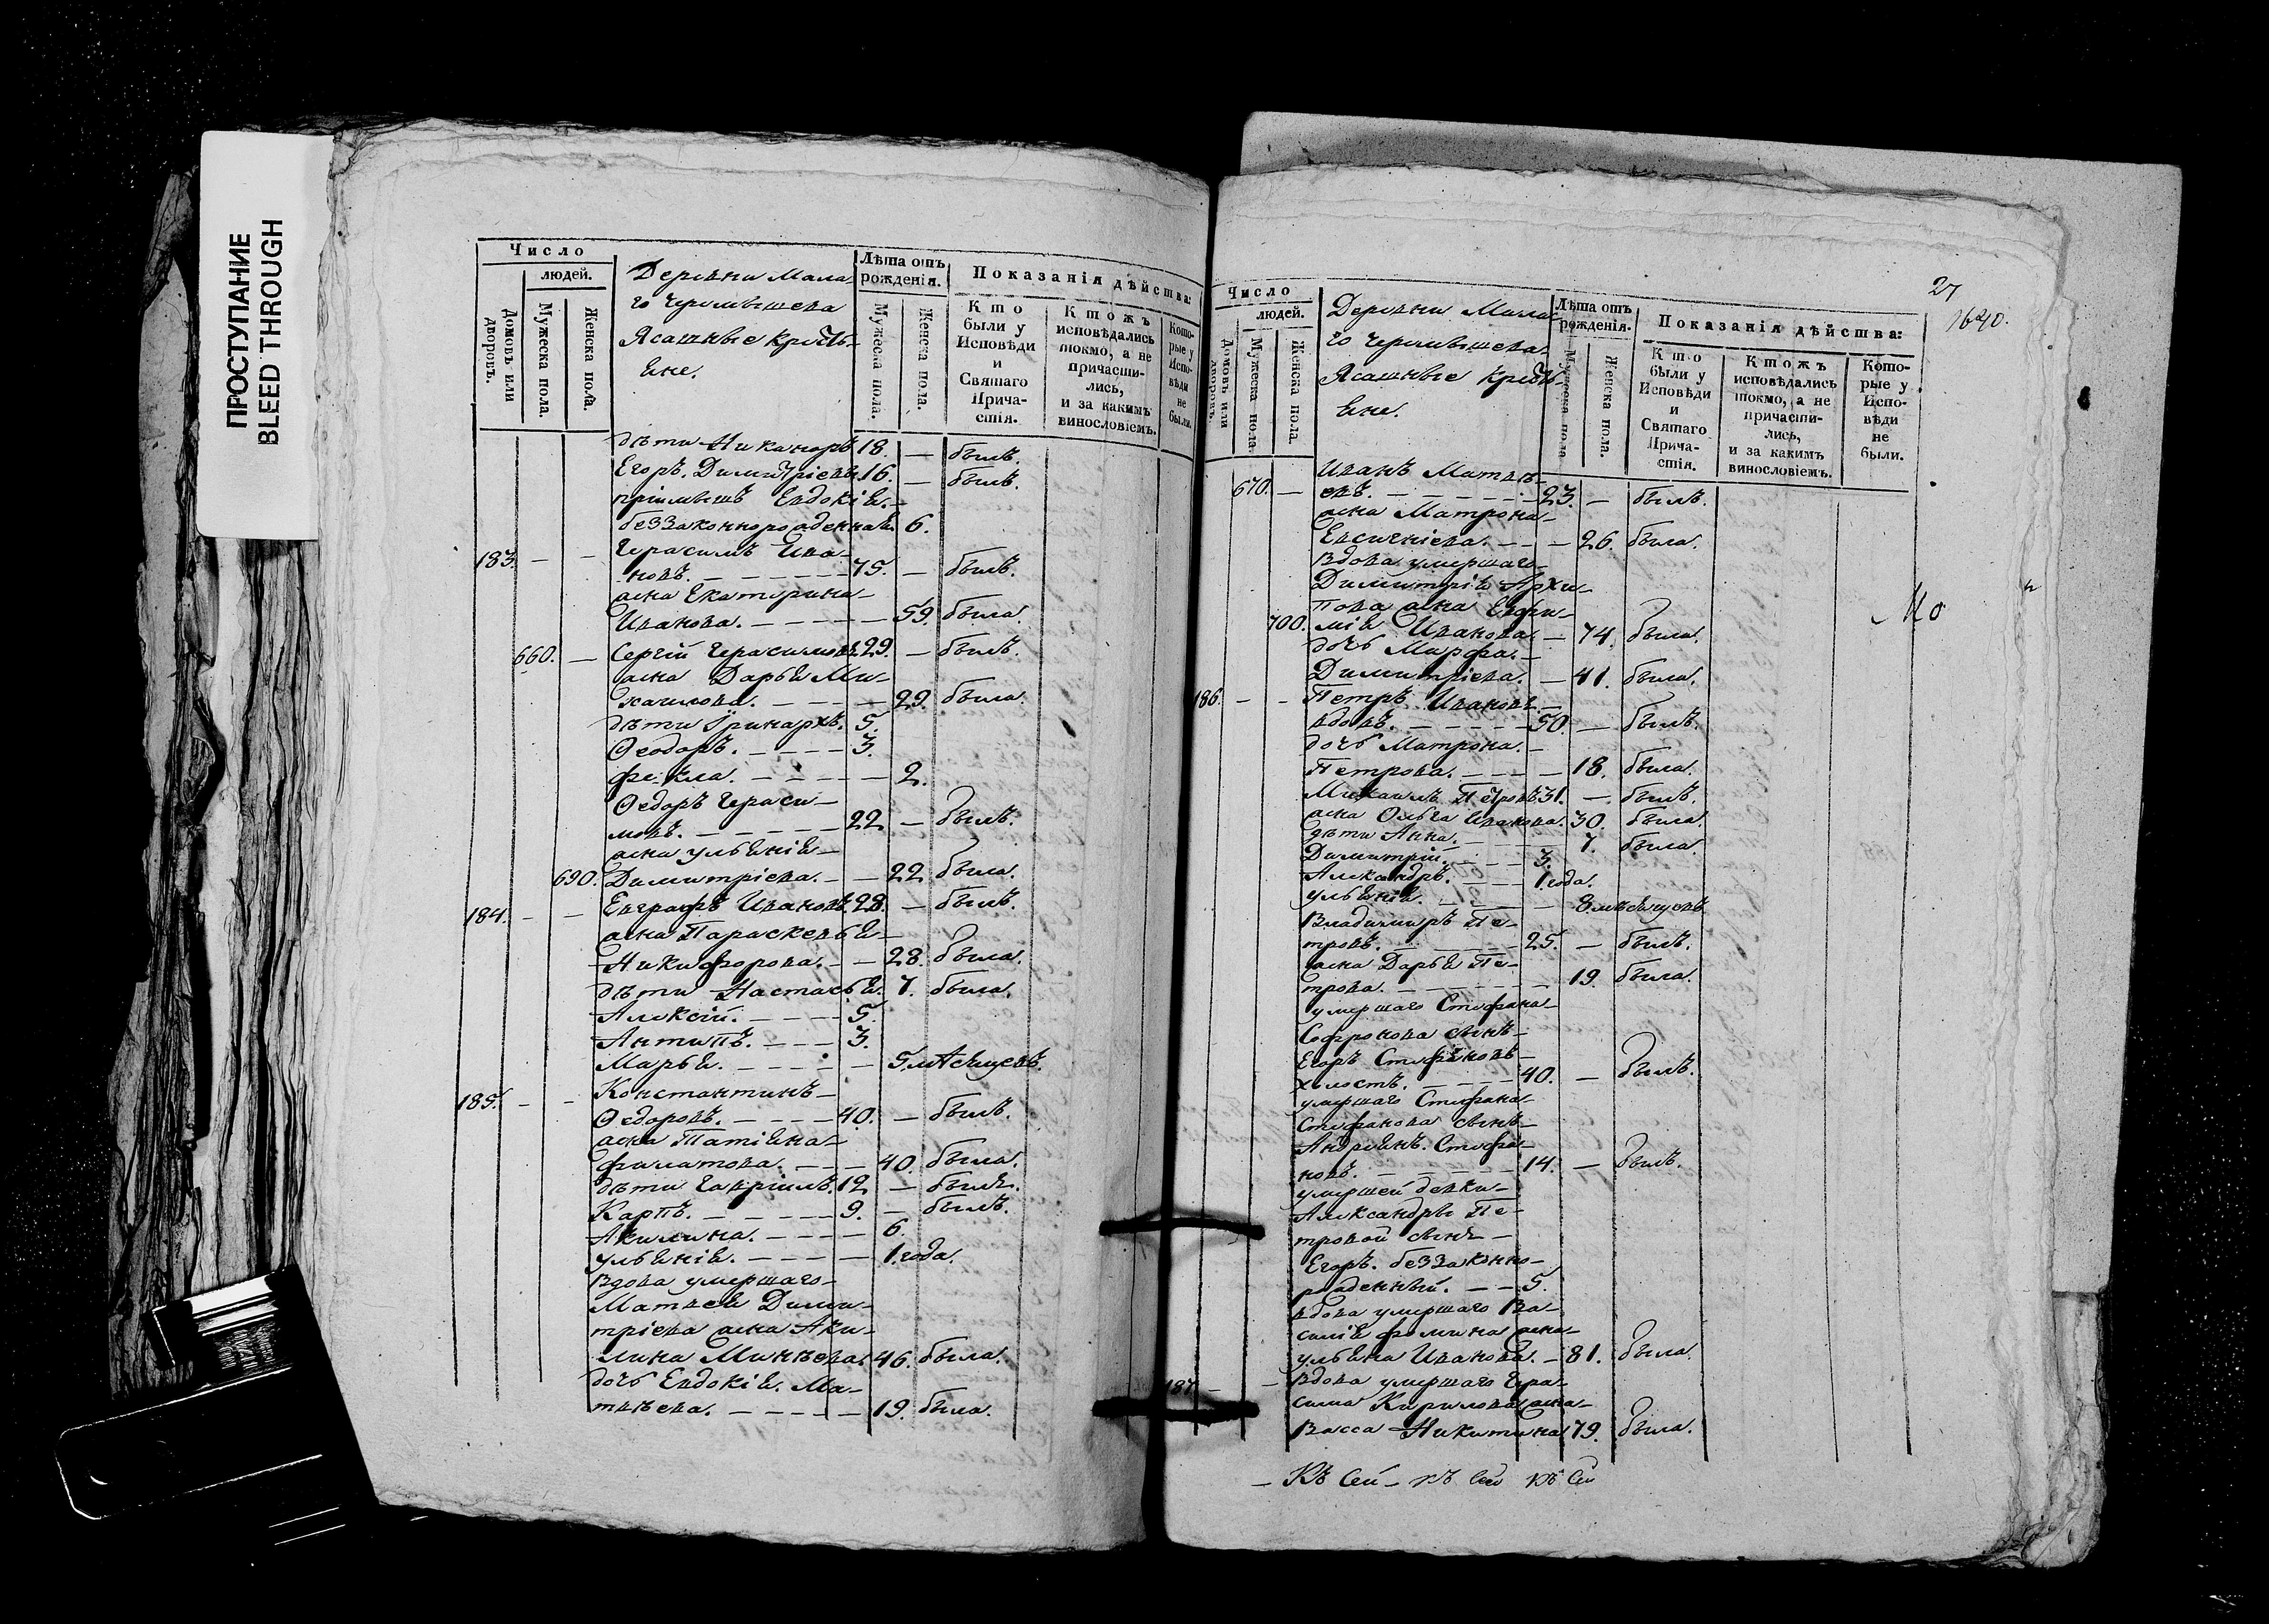 ПРОСТУПАНИЕ
BLEED THROUGH
Число
людей.
Домовъ или дворовъ.
Мужеска пола.
Женска пола.
Деревни Мала
го Чермышева
Ясашные кресть-
яне.
Лѣта отъ
рожденія.
Мужеска пола.
Женска пола.
Показанія дѣйства:
Кто
были у
Исповѣди
и
Святаго
Прича-
стія.
Ктожъ
исповѣдались
токмо, а не
причасти-
лись,
и за какимъ
винословіемъ.
Кото-
рые у
Испо-
вѣди
не
были.
дѣти Никаноръ 18. — былъ.
Егоръ. Димитріевы 16. — былъ.
пріимышъ Евдокія. —
беззаконнорожденная. 6.
183. — — Герасимъ Ива-
новъ. — 75. — былъ.
жена Екатерина —
Иванова. — 59. была.
660. — Сергій Герасимовъ 29. — былъ.
жена Дарья Ми-
хаилова. — 29. была.
дѣти Іринархъ. 5.
Ѳеодоръ. — 3.
Фекла. — 2.
Ѳедоръ Гераси-
мовъ. — 22 — былъ.
жена Ульянія —
690. Димитріева. — 22 была.
184. — — Евграфъ Ивановъ. 28. — былъ.
жена Параскевья —
Никифорова. — 28. была.
дѣти Настасья. 7. была.
Алексій. — 5.
Антипъ. — 3.
Марья. — 5. мѣсяцевъ.
185. — — Константинъ —
Ѳедоровъ. — 40. — былъ.
жена Татіяна —
Филатова. — 40. была.
дѣти Гавріилъ. 12 — былъ.
Карпъ. — 9. — былъ.
Акилина. — 6.
Ульянія. — 1. года.
Вдова умершаго —
Матвея Дими-
тріева жена Аки-
лина Минѣева. 46. была.
дочь Евдокія. Ма-
твѣева. — 19. была.
27
1640.
Число
людей.
Домовъ или дворовъ.
Мужеска пола.
Женска пола.
Деревни Мала-
го Чермышева
Ясашные кресть-
яне.
Лѣта отъ
рожденія.
Мужеска пола
Женска пола.
Показанія дѣйства:
Кто
были у
Исповѣди
и
Святаго
Прича-
стія.
Ктожъ
исповѣдались
токмо, а не
причасти-
лись,
и за какимъ
винословіемъ.
Кото-
рые у
Испо-
вѣди
не
были.
670. — Иванъ Матвѣ-
евъ. — 23. — былъ.
жена Матрона —
Евсигніева. — 26. была.
Вдова умершаго —
Димитрія Архи-
пова жена Евфи-
700. мія Иванова. — 74. была.
дочь Марфа. —
Димитріева. — 41. была.
186. — — Петръ Ивановъ —
вдовъ. — 50. — былъ.
дочь Матрона. —
Петрова. — 18. была.
Михаилъ Петровъ 31. — былъ.
жена Ольга Иванова. 30. была.
дѣти Анна. — 7. была.
Димитрій. — 3.
Александръ. — 1. года.
Ульянія. — 8 мѣсяцовъ
Владимиръ Пе-
тровъ. — 25. — былъ.
жена Дарья Пе-
трова. — 19. была.
умершаго Стефана —
Софронова сынъ —
Егоръ Стефановъ —
холостъ. — 40. — былъ.
умершаго Стефана —
Стефанова сынъ —
Андреянъ. Стефа-
новъ. — 14. — былъ.
умершей девки —
Александры Пе-
тровой сынъ —
Егоръ. беззаконно-
рожденный. — 5.
вдова умершаго Ва-
силія Фомина жена —
Ульяна Иванова. — 81. была.
187 — — Вдова умершаго Гера-
сима Кирилова жена —
Васса Никитина 79. была.
— Къ Сей — къ Сей къ Сей